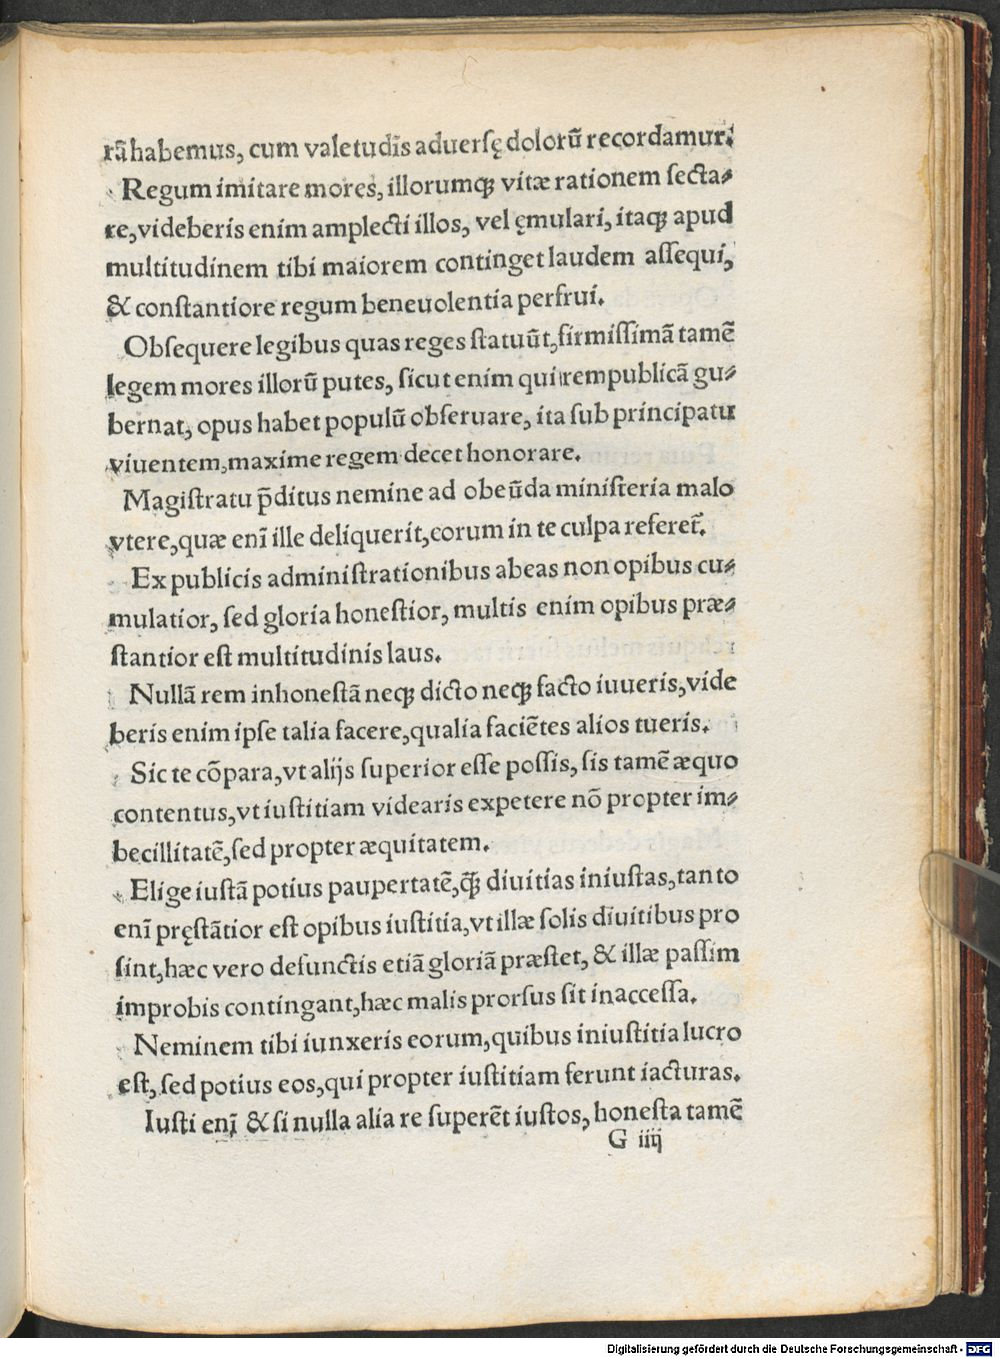 rā habemus, cum valetudīs aduersę dolorū recordamur.
Regum imitare mores, illorumqꝫ vitæ rationem secta⸗
re, videberis enim amplecti illos, vel ęmulari, itaqꝫ apud
multitudinem tibi maiorem continget laudem assequi,
& constantiore regum beneuolentia perfrui.
Obsequere legibus quas reges statuūt, firmissimā tamē
legem mores illorū putes, sicut enim qui rempublicā gu⸗
bernat, opus habet populū obseruare, ita sub principatu
viuentem, maxime regem decet honorare.
Magistratu p̄ditus nemine ad obeūda ministeria malo
vtere, quæ enī ille deliquerit, eorum in te culpa referet᷑.
Ex publicis administrationibus abeas non opibus cu⸗
mulatior, sed gloria honestior, multis enim opibus præ⸗
stantior est multitudinis laus.
Nullā rem inhonestā neqꝫ dicto neqꝫ facto iuueris, vide
beris enim ipse talia facere, qualia faciētes alios tueris.
Sic te cōpara, vt alijs superior esse possis, sis tamē æquo
contentus, vt iustitiam videaris expetere nō propter im⸗
becillitatē, sed propter æquitatem.
Elige iustā potius paupertatē, q̄ꝫ diuitias iniustas, tanto
enī pręstātior est opibus iustitia, vt illæ solis diuitibus pro
sint, hæc vero defunctis etiā gloriā præstet, & illæ passim
improbis contingant, hæc malis prorsus sit inaccessa.
Neminem tibi iunxeris eorum, quibus iniustitia lucro
est, sed potius eos, qui propter iustitiam ferunt iacturas.
Iusti enī & si nulla alia re superēt iustos, honesta tamē
G iiij
Digitalisierung gefördert durch die Deutsche Forschungsgemeinschaft - DFG